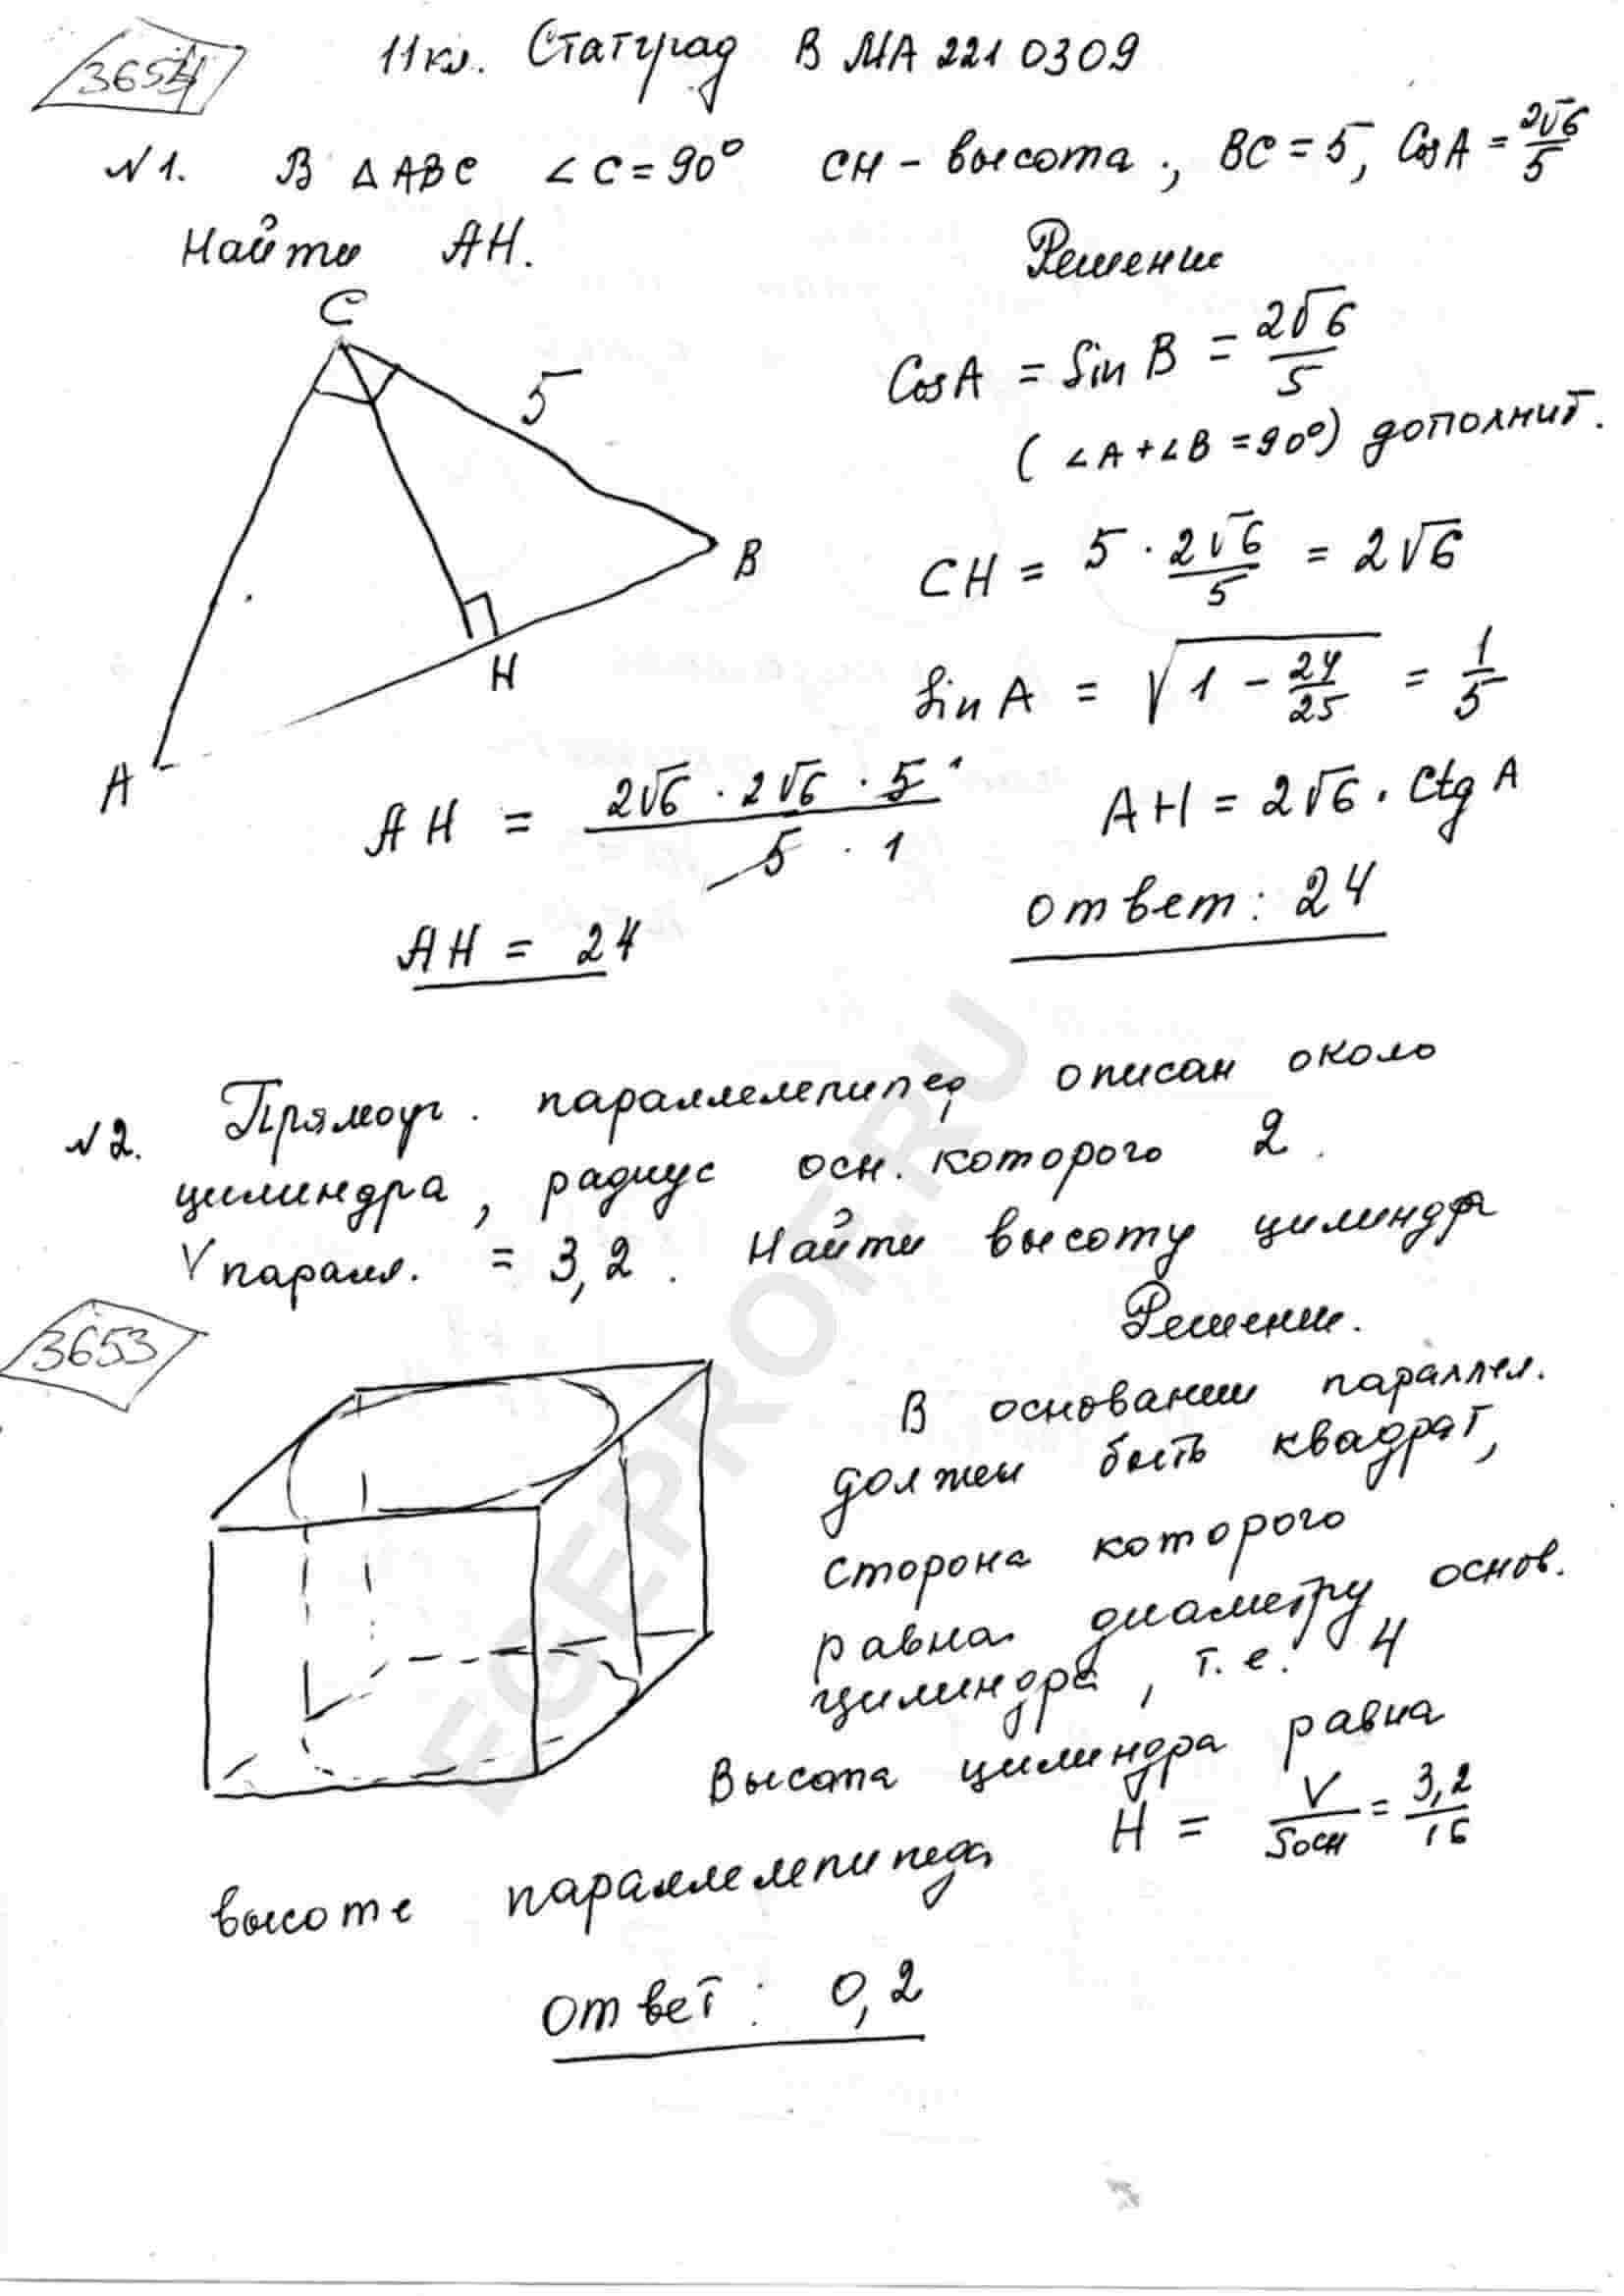 3654
11кл. Статград В МА 2210309
№1. В △ABC ∠C=90° CH - высота; BC=5, CosA=2√6/5
Найти AH.
Решение
C
5
B
H
A
CosA = Sin B = 2√6/5
(∠A+∠B=90°) дополнит.
CH = 5·2√6/5 = 2√6
Sin A = √(1 - 24/25) = 1/5
AH = 2√6 · Ctg A
AH = 2√6 · 2√6 · 5 / 5 · 1
AH = 24
Ответ: 24
№2. Прямоуг. параллелепипед описан около
цилиндра, радиус осн. которого 2.
V паралл. = 3,2. Найти высоту цилиндра
3653
Решение.
В основании параллел.
должен быть квадрат,
сторона которого
равна диаметру основ.
цилиндра, т.е. 4
Высота цилиндра равна
высоте параллелепипеда H = V/Sосн = 3,2/16
Ответ: 0,2
EGEPROF.RU